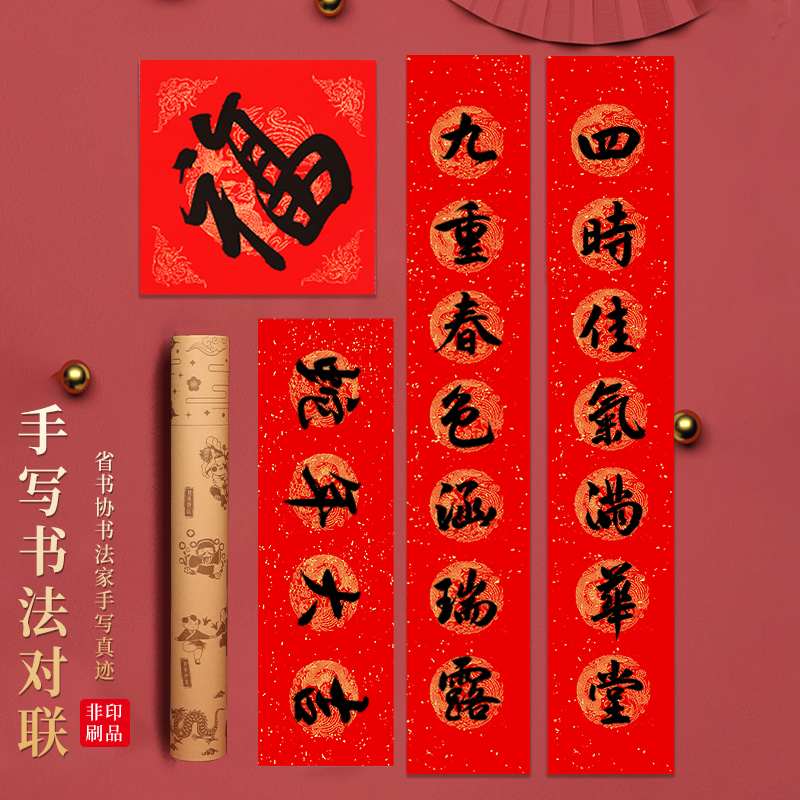 福
四時佳氣滿華堂
九重春色涵瑞露
蛇年大吉
手写书法对联
省书协书法家手写真迹
非印
刷品